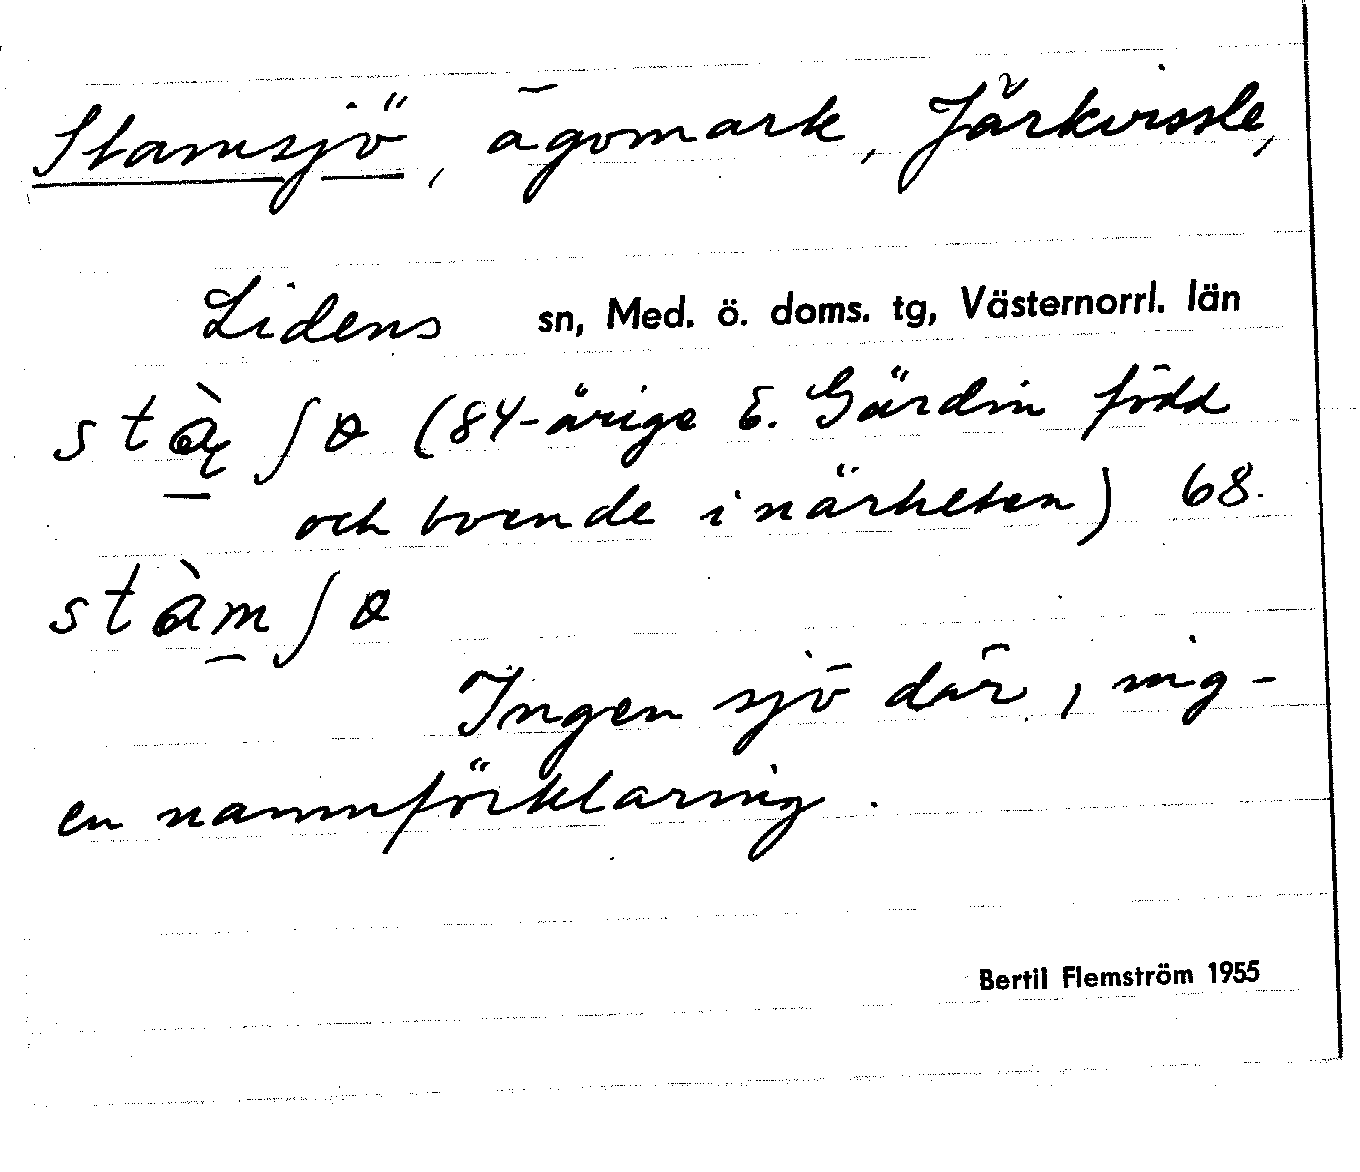 Stamsjö, ägomark, Järkvissle,
Lidens sn, Med. ö. doms. tg, Västernorrl. län
(84-årige E. Gärdin född
och boende i närheten) 68.
Ingen sjö där, ing-
en namnförklaring.
Bertil Flemström 1955